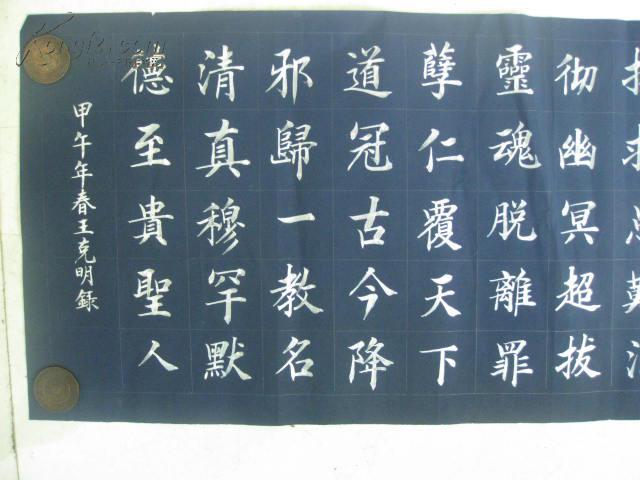 彻幽冥超拔
靈魂脱離罪
孽仁覆天下
道冠古今降
邪歸一教名
清真穆罕默
德至貴聖人
甲午年春王克明錄